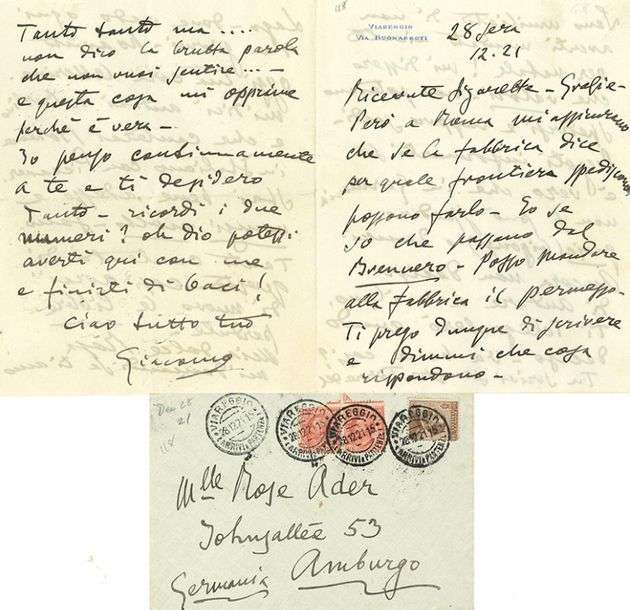 Tanto tanto ma ....
non dirò la brutta parola
che non vuoi sentire ... -
e questa cosa mi opprime
perchè è vera -
Io penso continuamente
a te e ti desidero
tanto - ricordi i due
numeri? oh dio potessi
averti qui con me
e finirti di baci!
Ciao tutto tuo
Giacomo
118
VIAREGGIO
VIA BUONARROTI
28 sera
12.21
Ricevute sigarette - Grazie -
Però a Roma mi
che se la fabbrica dice
per quale frontiera spediscono
possono farlo - Io se
so che passano dal
Brennero - Posso mandare
alla fabbrica il permesso -
Ti prego dunque di scrivere
e dimmi che cosa
rispondono -
Dec 28
21
118
VIAREGGIO
28.12.21
ARRIVI E PARTENZE
VIAREGGIO
28.12.21
ARRIVI E PARTENZE
VIAREGGIO
28.12.21
ARRIVI E PARTENZE
VIAREGGIO
28.12.21
ARRIVI E PARTENZE
Mlle Rose Ader
Johnsallée 53
Amburgo
Germania